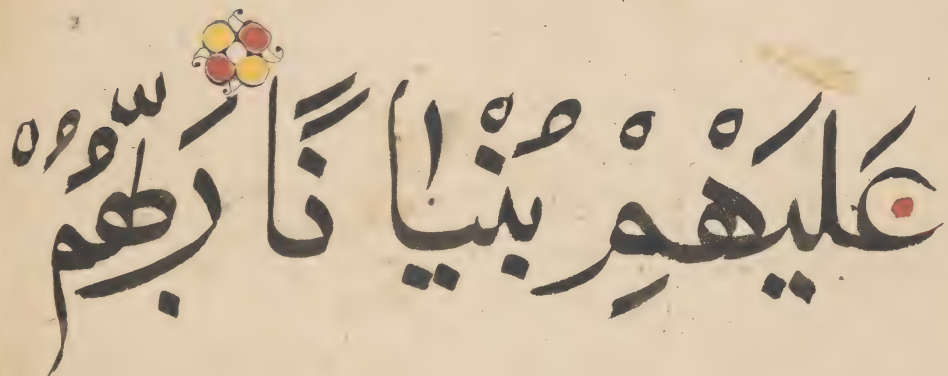 عَلَيْهِمْ بُنْيَانًا رَبُّهُمْ